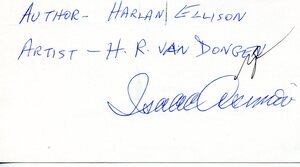 AUTHOR- HARLAN ELLISON
ARTIST - H. R. VAN DONGEN
Isaac Asimov